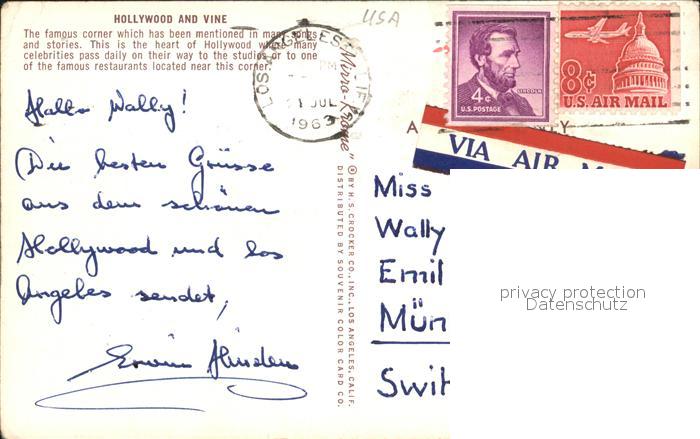 USA
HOLLYWOOD AND VINE
The famous corner which has been mentioned in many songs
and stories. This is the heart of Hollywood where many
celebrities pass daily on their way to the studios or to one
of the famous restaurants located near this corner.
LOS ANGELES CALIF
PM
21 JUL
1963
4¢
LINCOLN
U.S. POSTAGE
8¢
U.S. AIR MAIL
VIA AIR M
Hallo Wally!
Die besten Grüsse
aus dem schönen
Hollywood und Los
Angeles sendet,
Erwin
"Mirro-Krome" ® BY H. S. CROCKER CO., INC., LOS ANGELES, CALIF.
DISTRIBUTED BY SOUVENIR COLOR CARD CO.
Miss
Wally
Emil
Mün
Swit
privacy protection
Datenschutz